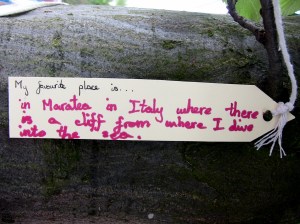 My favourite place is...
in Maratea in Italy where there
is a cliff from where I dive
into the sea.